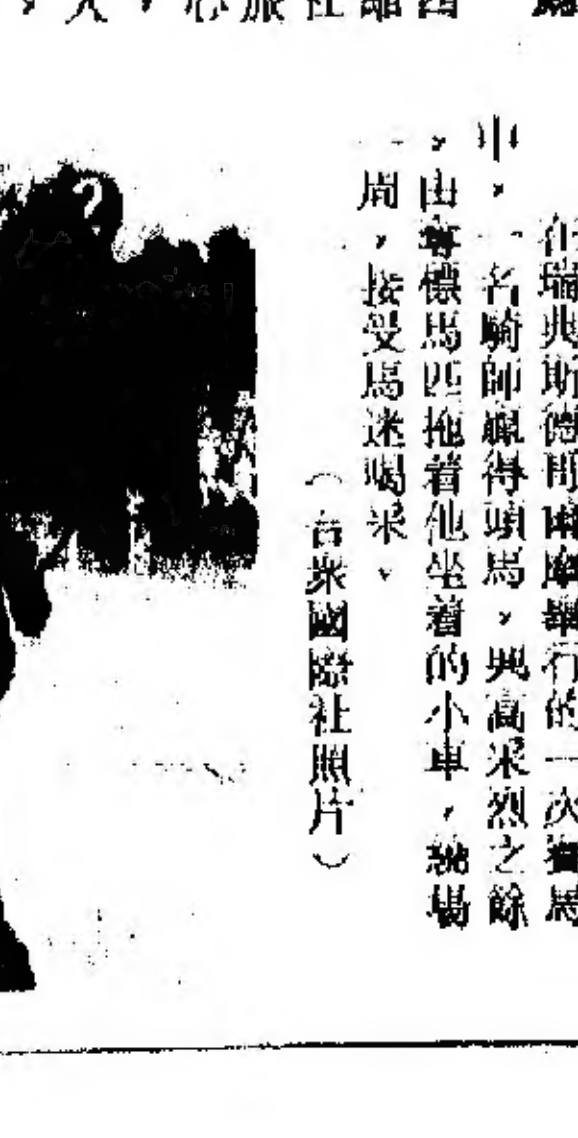 在瑞典斯德哥爾摩舉行的一次賽馬
中，一名騎師贏得頭馬，興高采烈之餘
，由奪標馬匹拖着他坐着的小車，繞場
一周，接受馬迷喝采。
（合眾國際社照片）